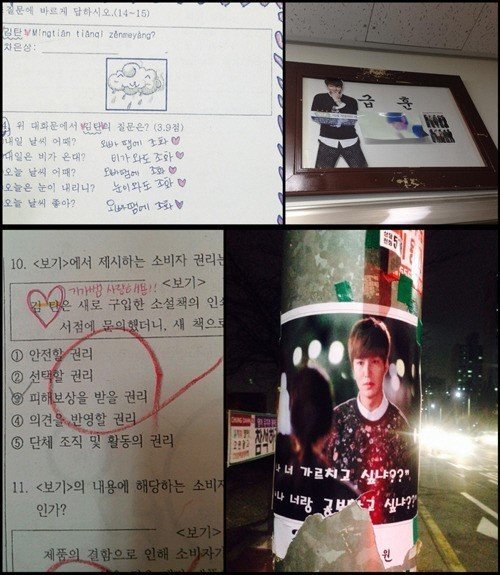 질문에 바르게 답하시오.(14~15)
김탄 Míngtiān tiānqì zěnmeyàng?
차은상:
위 대화문에서 김탄의 질문은? (3.9점)
내일 날씨 어때? 오빠 땜에 조화
내일은 비가 온대? 비가 와도 조화
오늘 날씨 어때? 오빠땜에 조화
오늘은 눈이 내리니? 눈이와도 조화
오늘 날씨 좋아? 오빠 땜에 조화
급 훈
10. <보기>에서 제시하는 소비자 권리는
<보기>
김 탄은 새로 구입한 소설책의 인쇄
서점에 문의했더니, 새 책으로
① 안전할 권리
② 선택할 권리
③ 피해보상을 받을 권리
④ 의견을 반영할 권리
⑤ 단체 조직 및 활동의 권리
11. <보기>의 내용에 해당하는 소비자
인가?
<보기>
제품의 결함으로 인해 소비자가
나 너 가르치고 싶냐??"
나 너랑 공부하고 싶냐??"
원